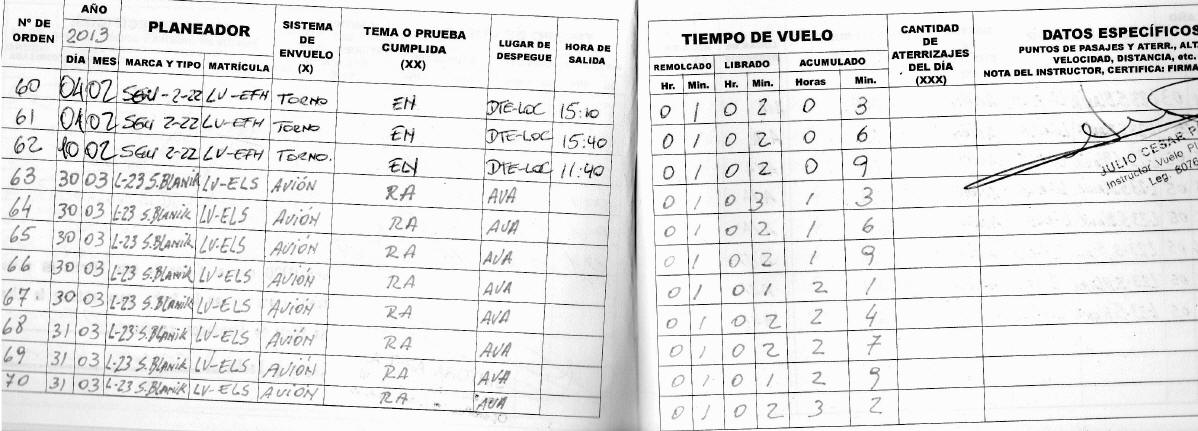 Nº DE ORDEN AÑO 2013 PLANEADOR SISTEMA DE ENVUELO (X) TEMA O PRUEBA CUMPLIDA (XX) LUGAR DE DESPEGUE HORA DE SALIDA TIEMPO DE VUELO CANTIDAD DE ATERRIZAJES DEL DÍA (XXX) DATOS ESPECÍFICOS
PUNTOS DE PASAJES Y ATERR., ALT.
VELOCIDAD, DISTANCIA, etc.
NOTA DEL INSTRUCTOR, CERTIFICA: FIRMA
DÍA MES MARCA Y TIPO MATRÍCULA REMOLCADO LIBRADO ACUMULADO
Hr. Min. Hr. Min. Horas Min.
60 04 02 SGU-2-22 LV-EFH TORNO EN DTE-LOC 15:10 0 1 0 2 0 3
61 02 SGU 2-22 LV-EFH TORNO EN DTE-LOC 15:40 0 1 0 2 0 6
62 10 02 SGU 2-22 LV-EFH TORNO. EN DTE-LOC 11:40 0 1 0 2 0 9
63 30 03 L-23 S.Blanik LV-ELS AVIÓN RA AVA 0 1 0 3 1 3
64 30 03 L-23 S.Blanik LV-ELS AVIÓN RA AVA 0 1 0 2 1 6
65 30 03 L-23 S.Blanik LV-ELS AVIÓN RA AVA 0 1 0 2 1 9
66 30 03 L-23 S.Blanik LV-ELS AVIÓN RA AVA 0 1 0 1 2 1
67 30 03 L-23 S.Blanik LV-ELS AVIÓN RA AVA 0 1 0 2 2 4
68 31 03 L-23 S.Blanik LV-ELS AVIÓN RA AVA 0 1 0 2 2 7
69 31 03 L-23 S.Blanik LV-ELS AVIÓN RA AVA 0 1 0 1 2 9
70 31 03 L-23 S.Blanik LV-ELS AVIÓN RA AVA 0 1 0 2 3 2
JULIO CESAR
Instructor Vuelo
Leg. 6078